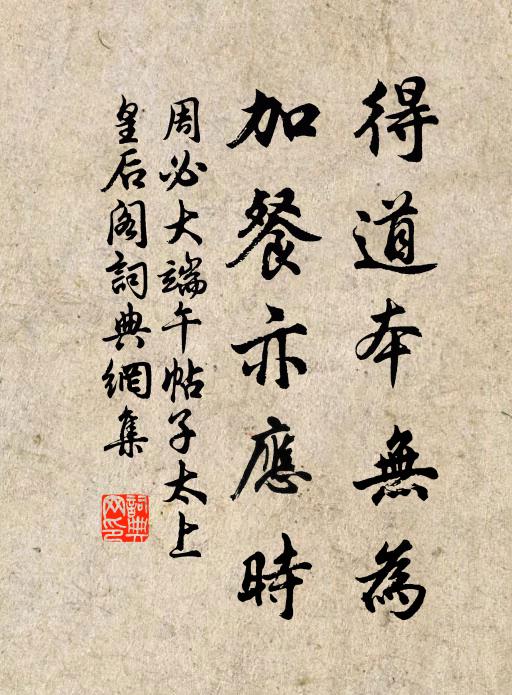 得道本無為
加餐亦應時
周必大端午帖子太上
皇后閣詞典網集
詞典网印